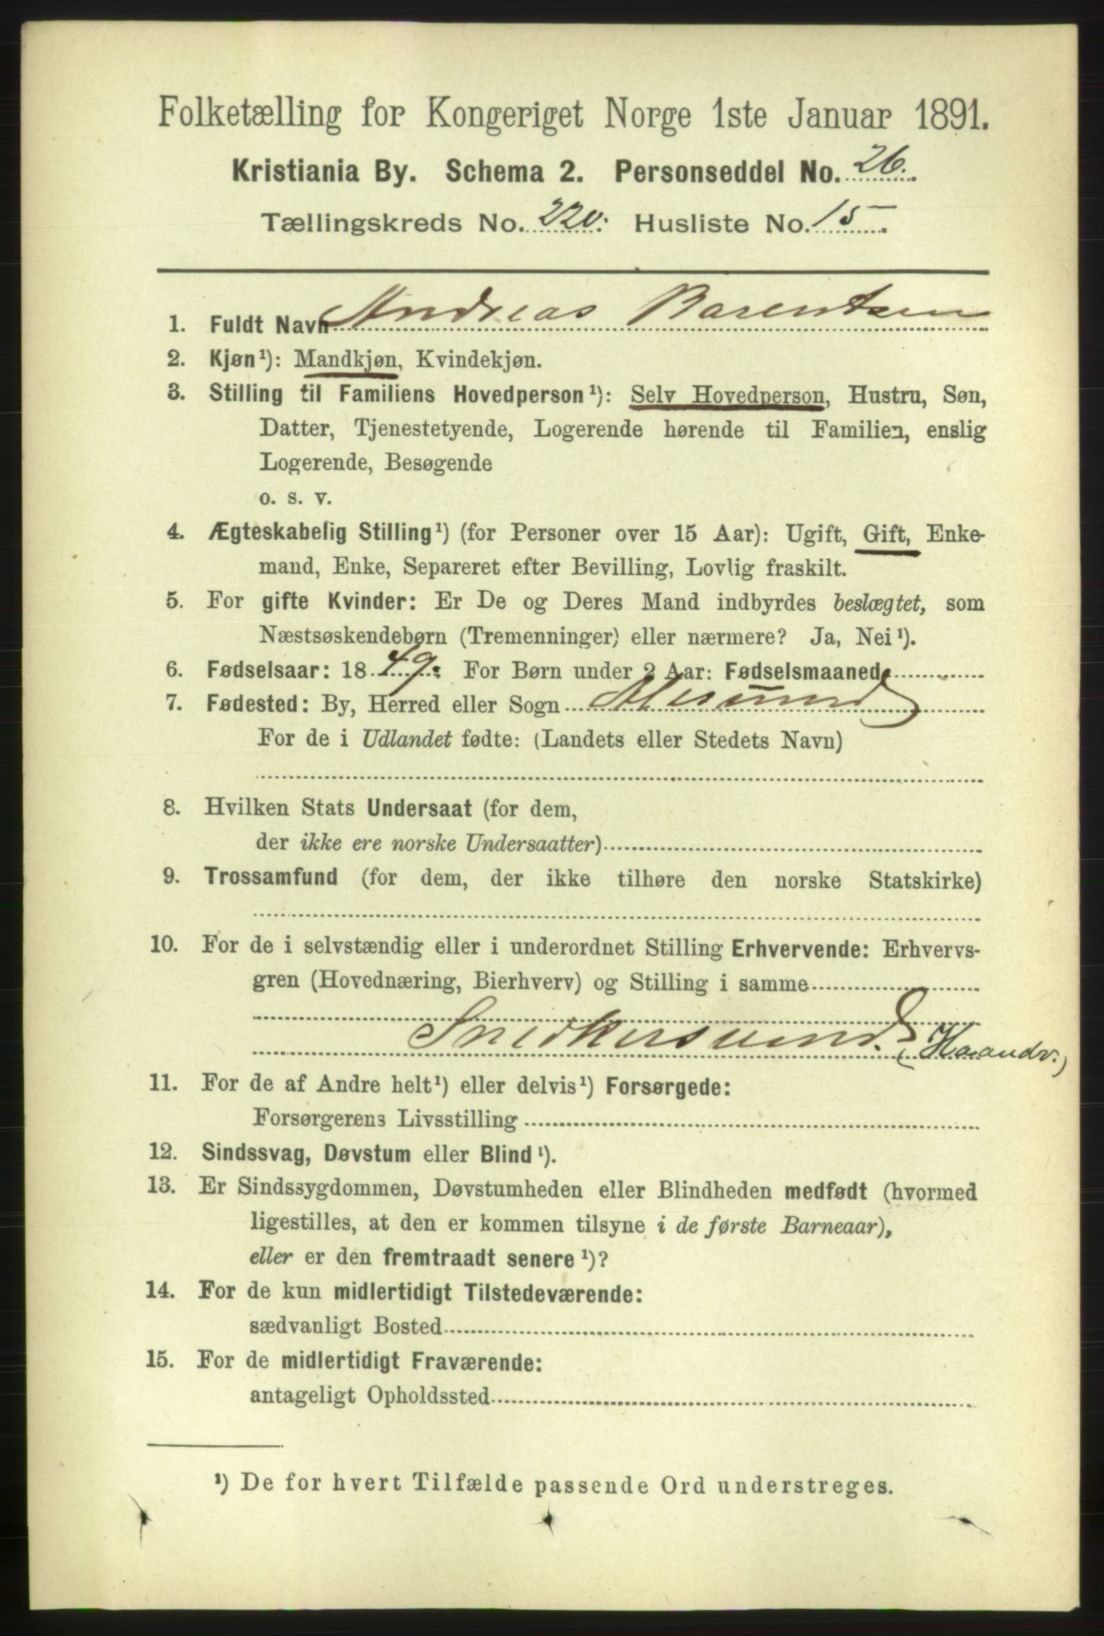 Folketælling for Kongeriget Norge 1ste Januar 1891.
Kristiania By. Schema 2. Personseddel No. 26.
Tællingskreds No. 220. Husliste No. 15.
1. Fuldt Navn Andreas Barentsen
2. Kjøn¹): Mandkjøn, Kvindekjøn.
3. Stilling til Familiens Hovedperson¹): Selv Hovedperson, Hustru, Søn,
Datter, Tjenestetyende, Logerende hørende til Familien, enslig
Logerende, Besøgende
o. s. v.
4. Ægteskabelig Stilling¹) (for Personer over 15 Aar): Ugift, Gift, Enke-
mand, Enke, Separeret efter Bevilling, Lovlig fraskilt.
5. For gifte Kvinder: Er De og Deres Mand indbyrdes beslægtet, som
Næstsøskendebørn (Tremenninger) eller nærmere? Ja, Nei¹).
6. Fødselsaar: 1849. For Børn under 2 Aar: Fødselsmaaned
7. Fødested: By, Herred eller Sogn Alesund
For de i Udlandet fødte: (Landets eller Stedets Navn)
8. Hvilken Stats Undersaat (for dem,
der ikke ere norske Undersaatter)
9. Trossamfund (for dem, der ikke tilhøre den norske Statskirke)
10. For de i selvstændig eller i underordnet Stilling Erhvervende: Erhvervs-
gren (Hovednæring, Bierhverv) og Stilling i samme
Snedkersvend. (Haandv.)
11. For de af Andre helt¹) eller delvis¹) Forsørgede:
Forsørgerens Livsstilling
12. Sindssvag, Døvstum eller Blind¹).
13. Er Sindssygdommen, Døvstumheden eller Blindheden medfødt (hvormed
ligestilles, at den er kommen tilsyne i de første Barneaar),
eller er den fremtraadt senere¹)?
14. For de kun midlertidigt Tilstedeværende:
sædvanligt Bosted
15. For de midlertidigt Fraværende:
antageligt Opholdssted
¹) De for hvert Tilfælde passende Ord understreges.